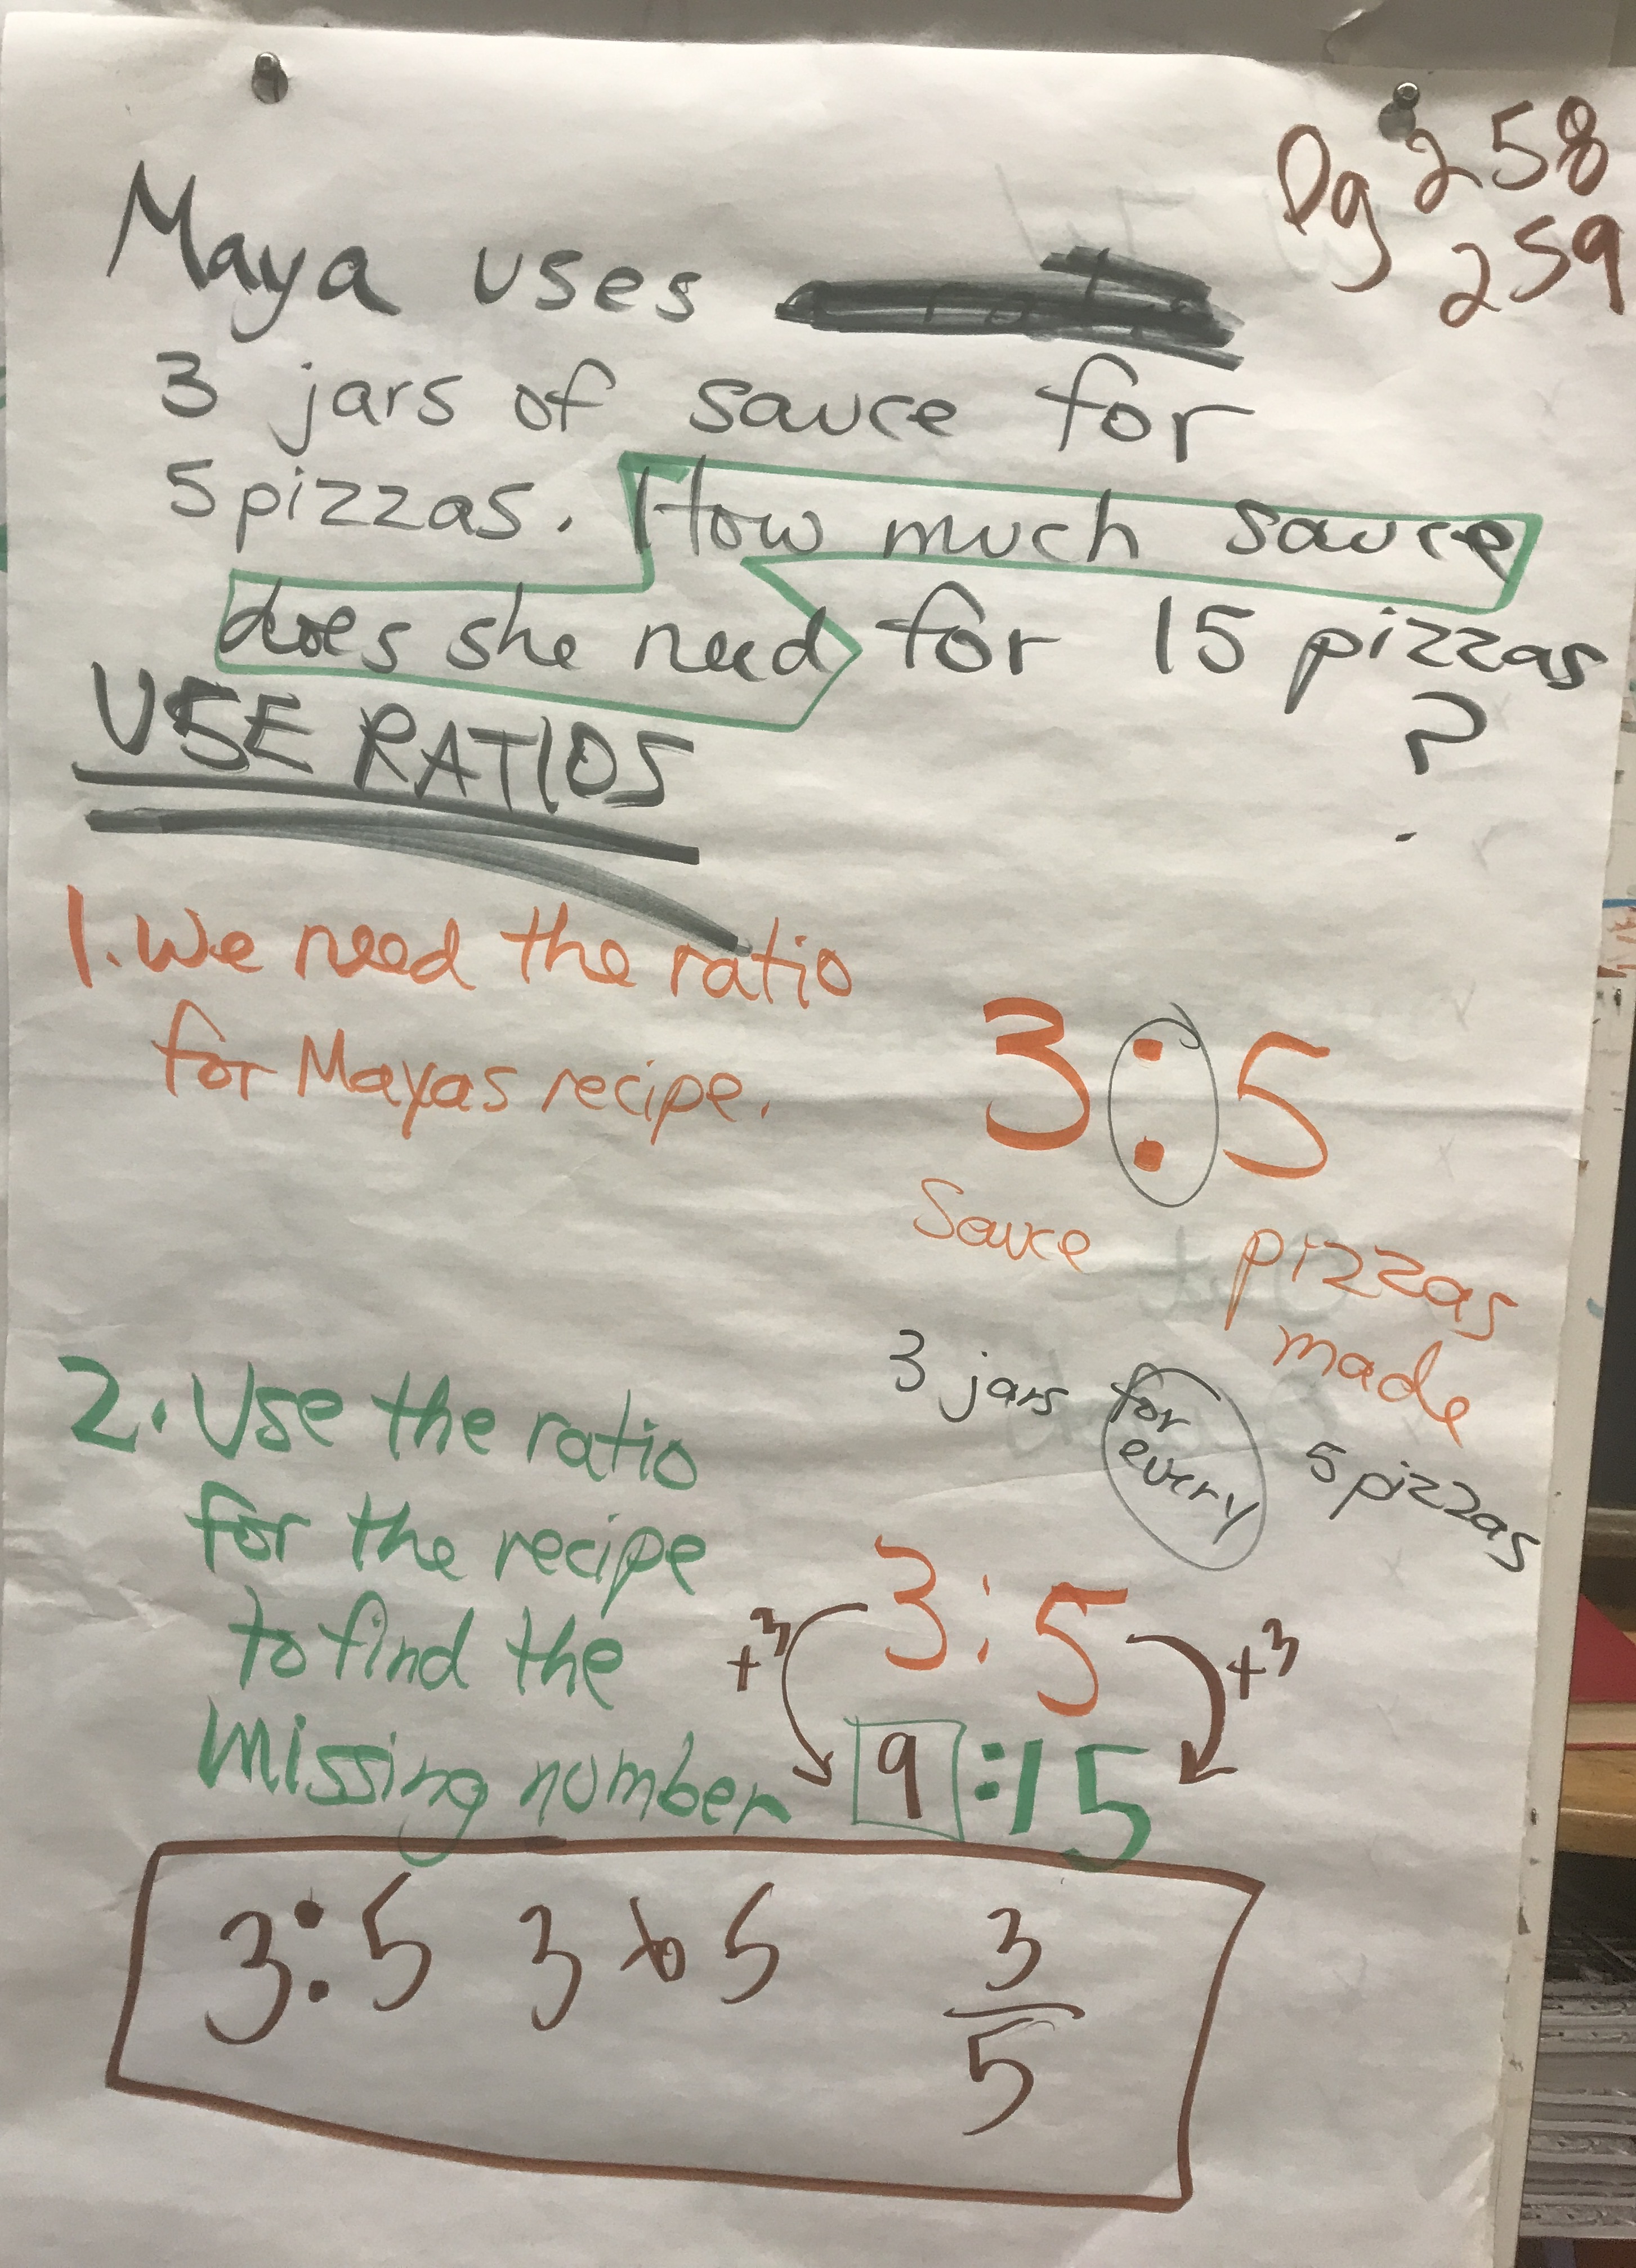 Pg 258
259
Maya uses
3 jars of sauce for
5 pizzas. How much sauce
does she need for 15 pizzas
?
USE RATIOS
1. We need the ratio
for Mayas recipe.
3:5
Sauce pizzas
made
3 jars for
every 5 pizzas
2. Use the ratio
for the recipe
to find the
missing number
3:5
+3 +3
9:15
3:5 3 to 5 3
5